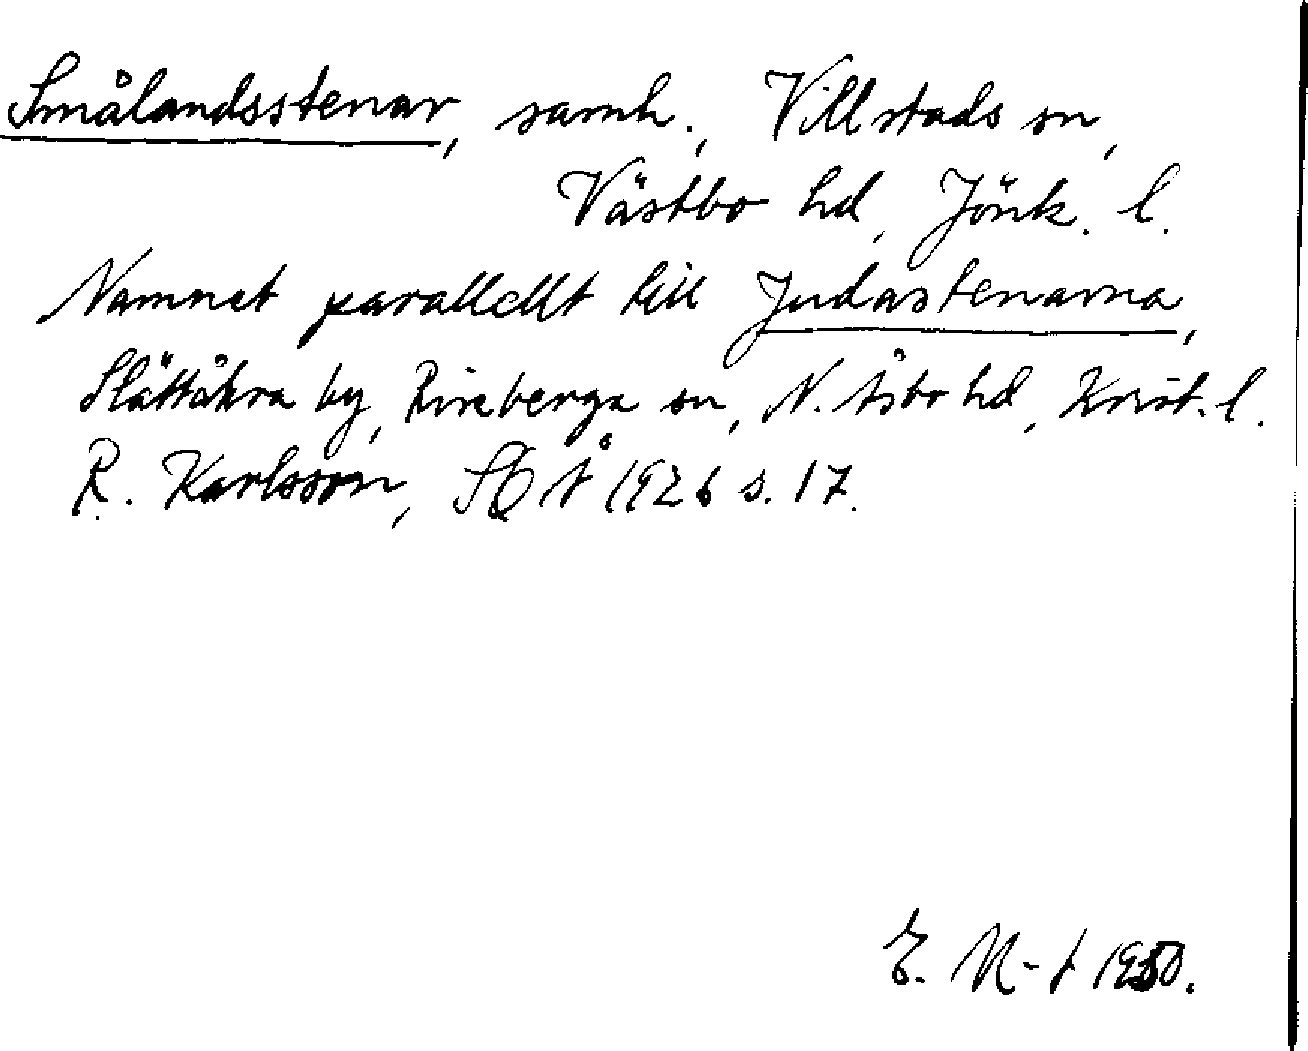 Smålandsstenar, samh., Villstads sn,
Västbo hd, Jönk. l.
Namnet parallellt till Judastenarna,
Slättåkra by, Riseberga sn, N. Åsbo hd, Krist. l.
R. Karlsson, SOÅ 1926 s. 17.
E. N-t 1950.